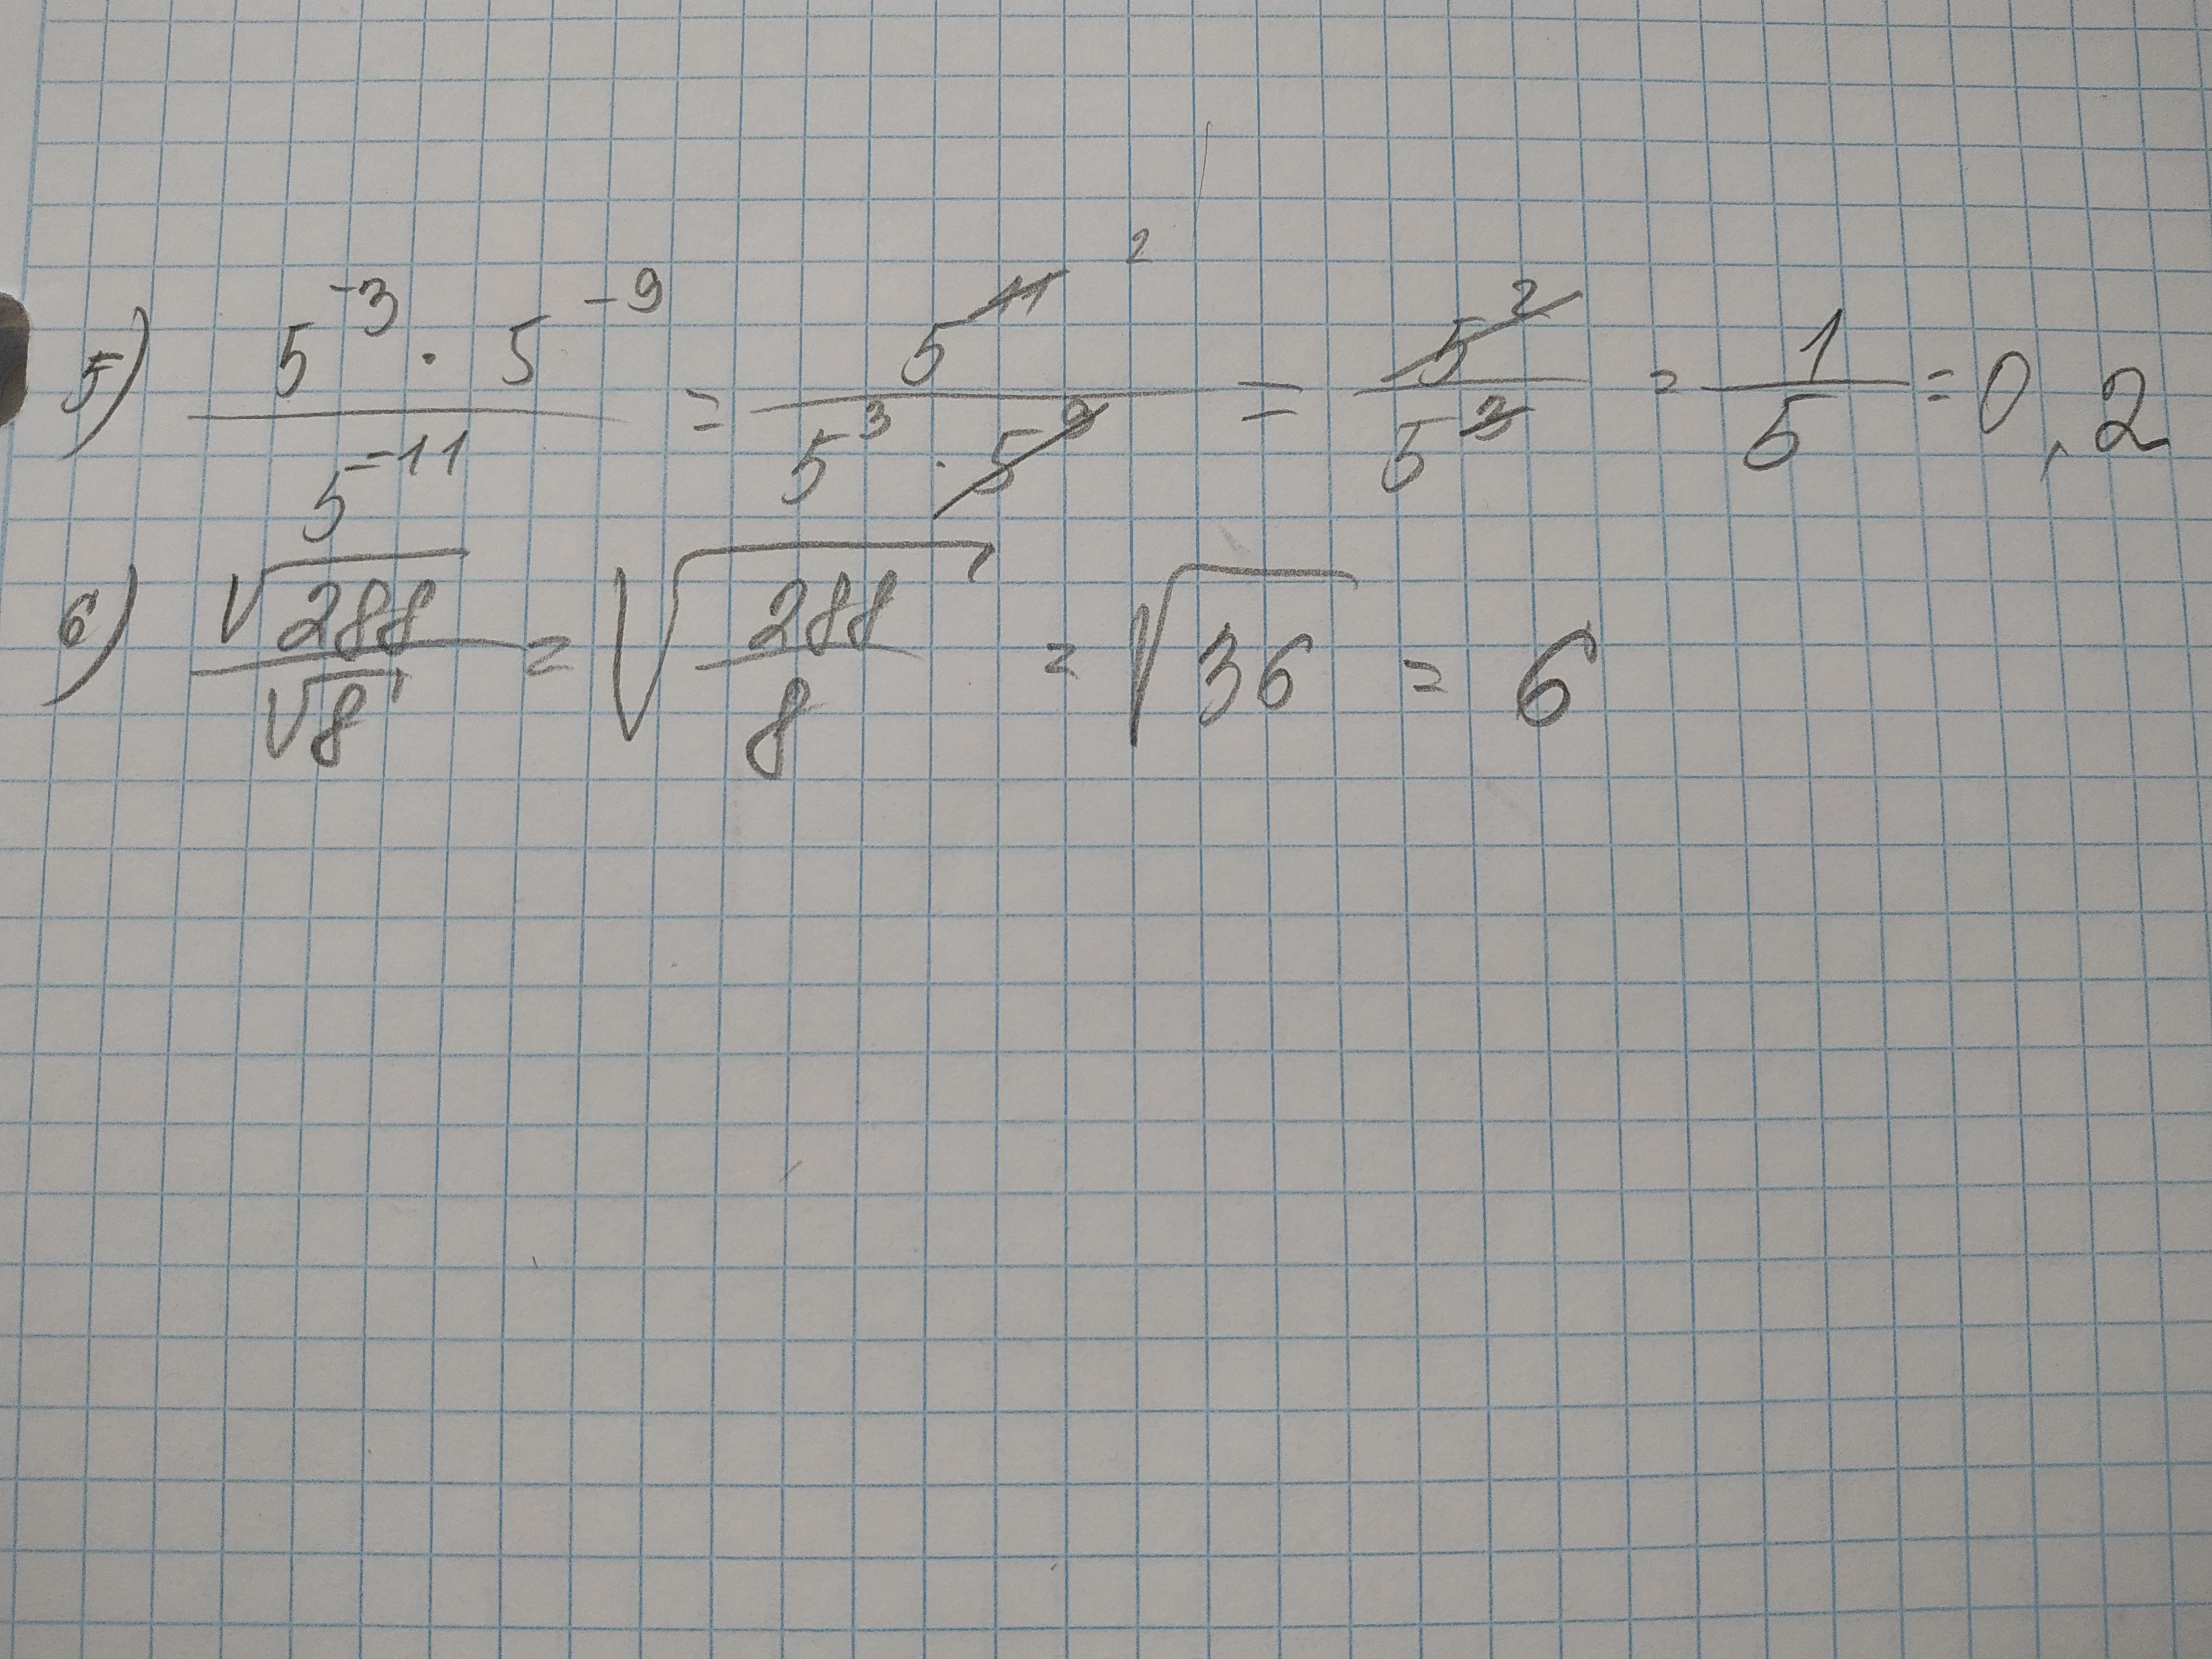 5) 5^-3 · 5^-9 / 5^-11 = 5^11 2 / 5^3 · 5^9 = 5^2 / 5^3 = 1 / 5 = 0,2
6) √288 / √8 = √(288 / 8) = √36 = 6